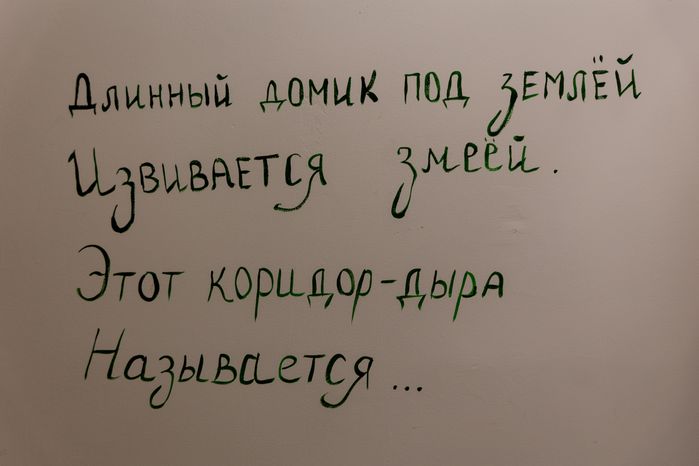 Длинный домик под землёй
Извивается змеёй.
Этот коридор-дыра
Называется...